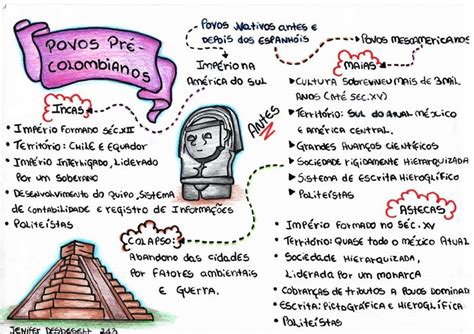 Povos Pré-
Colombianos
Povos Nativos antes e
depois dos espanhóis
Povos Mesoamericanos
Império na
América do sul
Antes
Incas
• Império formado séc. XII
• Território: Chile e Equador
• Império Interligado, liderado
por um soberano
• Desenvolvimento do quipo, sistema
de contabilidade e registro de informações
• Politeístas
Colapso:
Abandono das cidades
por fatores ambientais
e guerra.
Maias
Cultura sobreviveu mais de 3 mil
anos (até séc. XV)
Território: Sul do atual México
e América Central.
Grandes avanços científicos
Sociedade rigidamente hierarquizada
Sistema de escrita hieroglífico
Politeístas
Astecas
• Império formado no séc. XV
• Território: Quase todo o México Atual
• Sociedade hierarquizada,
liderada por um monarca
• Cobranças de tributos a povos dominad
• Escrita: Pictográfica e hieroglífica
• Politeístas
Jenifer 243